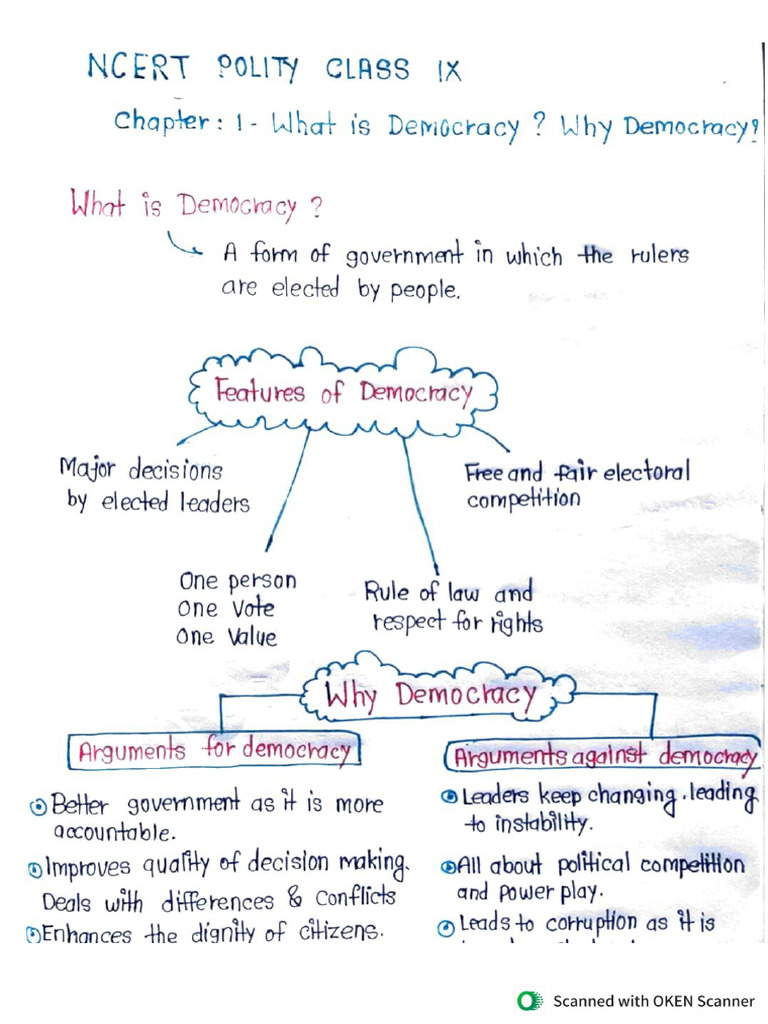 NCERT POLITY CLASS IX
Chapter: 1 - What is Democracy? Why Democracy?
What is Democracy?
A form of government in which the rulers
are elected by people.
Features of Democracy
Major decisions
by elected leaders
Free and fair electoral
competition
One person
One Vote
One Value
Rule of law and
respect for rights
Why Democracy
Arguments for democracy
Arguments against democracy
Better government as it is more
accountable.
Improves quality of decision making.
Deals with differences & conflicts
Enhances the dignity of citizens.
Leaders keep changing. leading
to instability.
All about political competition
and power play.
Leads to corruption as it is
Scanned with OKEN Scanner